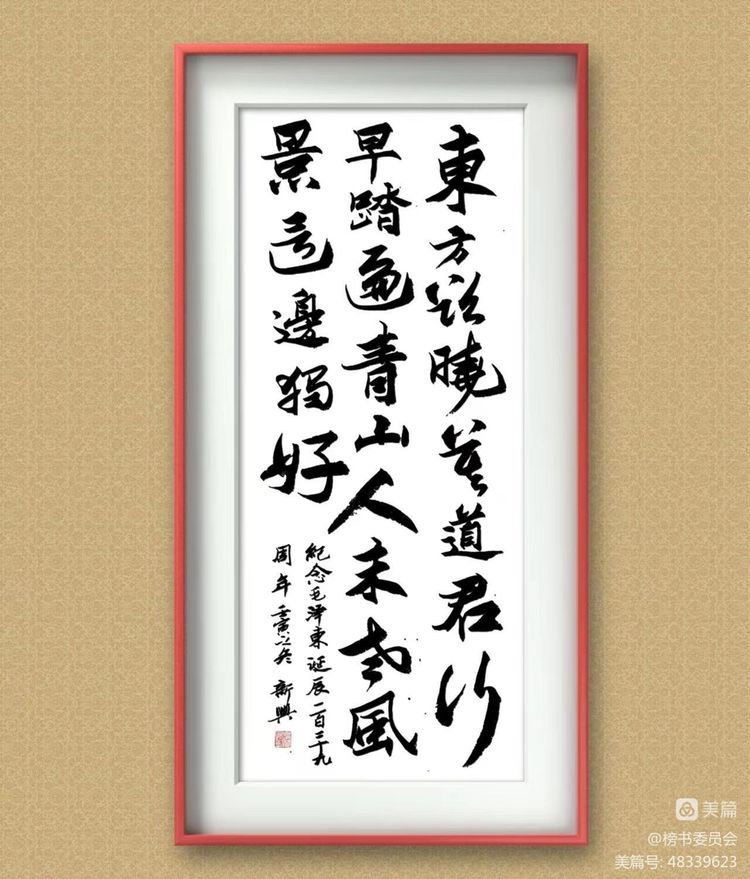 東方欲曉莫道君行
早踏遍青山人未老風
景這邊獨好
紀念毛澤東誕辰一百二十九
周年壬寅之冬 新興
美篇
@榜书委员会
美篇号: 48339623